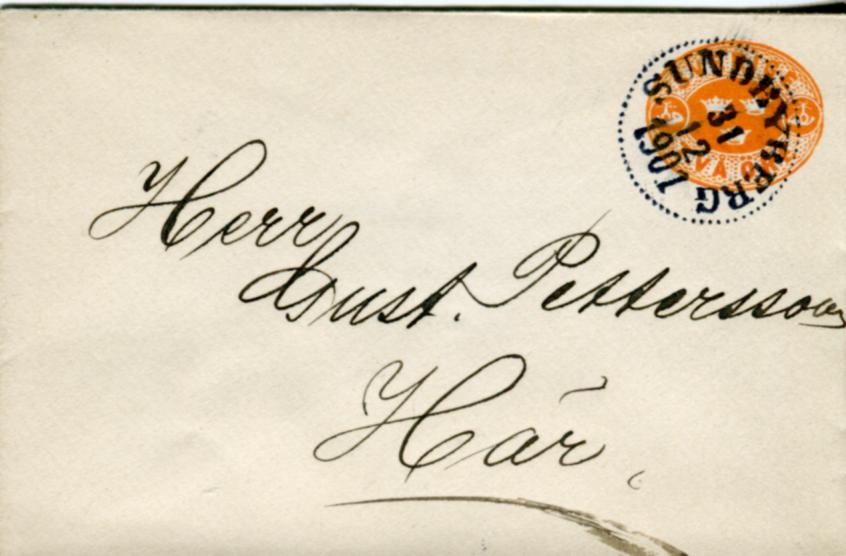 SUNDBYBERG
31
12
1907
TVÅ ÖRE
Herr
Gust. Pettersson
Här.